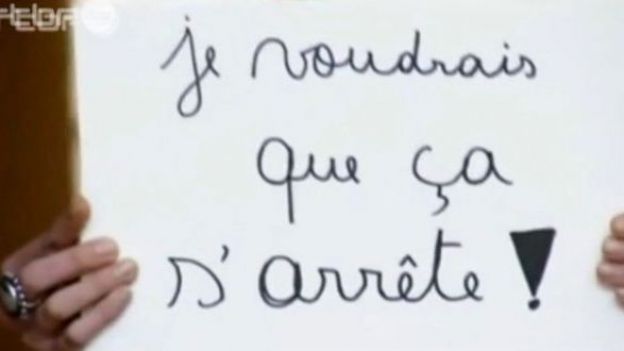 je voudrais
que ça
s'arrête !